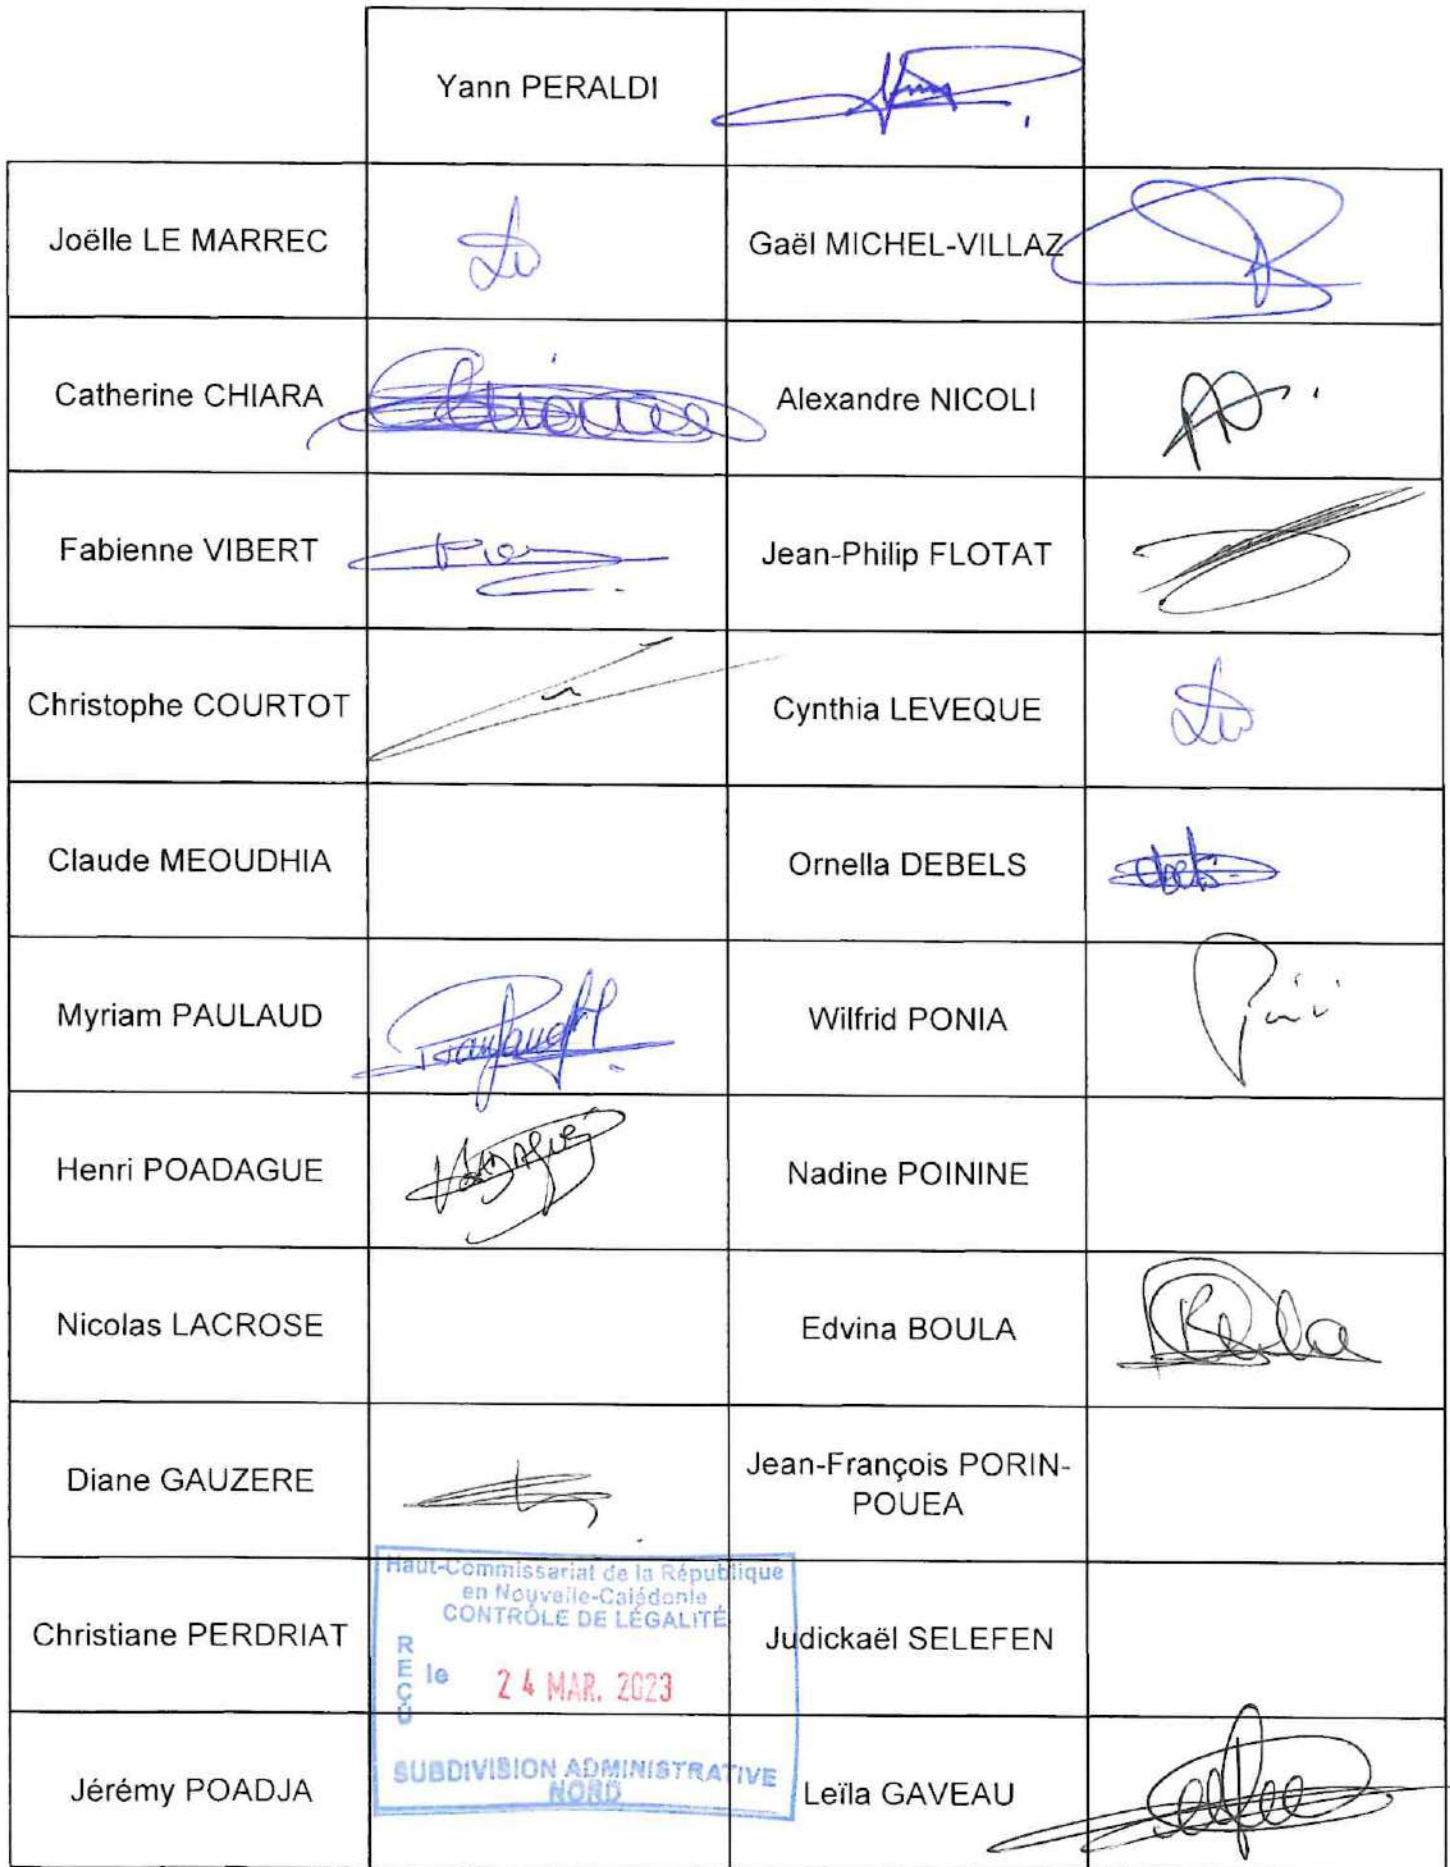 Yann PERALDI
Joëlle LE MARREC
Gaël MICHEL-VILLAZ
Catherine CHIARA
Alexandre NICOLI
Fabienne VIBERT
Jean-Philip FLOTAT
Christophe COURTOT
Cynthia LEVEQUE
Claude MEOUDHIA
Ornella DEBELS
Myriam PAULAUD
Wilfrid PONIA
Henri POADAGUE
Nadine POININE
Nicolas LACROSE
Edvina BOULA
Diane GAUZERE
Jean-François PORIN-
POUEA
Christiane PERDRIAT
Haut-Commissariat de la République
en Nouvelle-Calédonie
CONTRÔLE DE LÉGALITÉ
REÇU le 24 MAR. 2023
SUBDIVISION ADMINISTRATIVE
NORD
Judickaël SELEFEN
Jérémy POADJA
Leïla GAVEAU